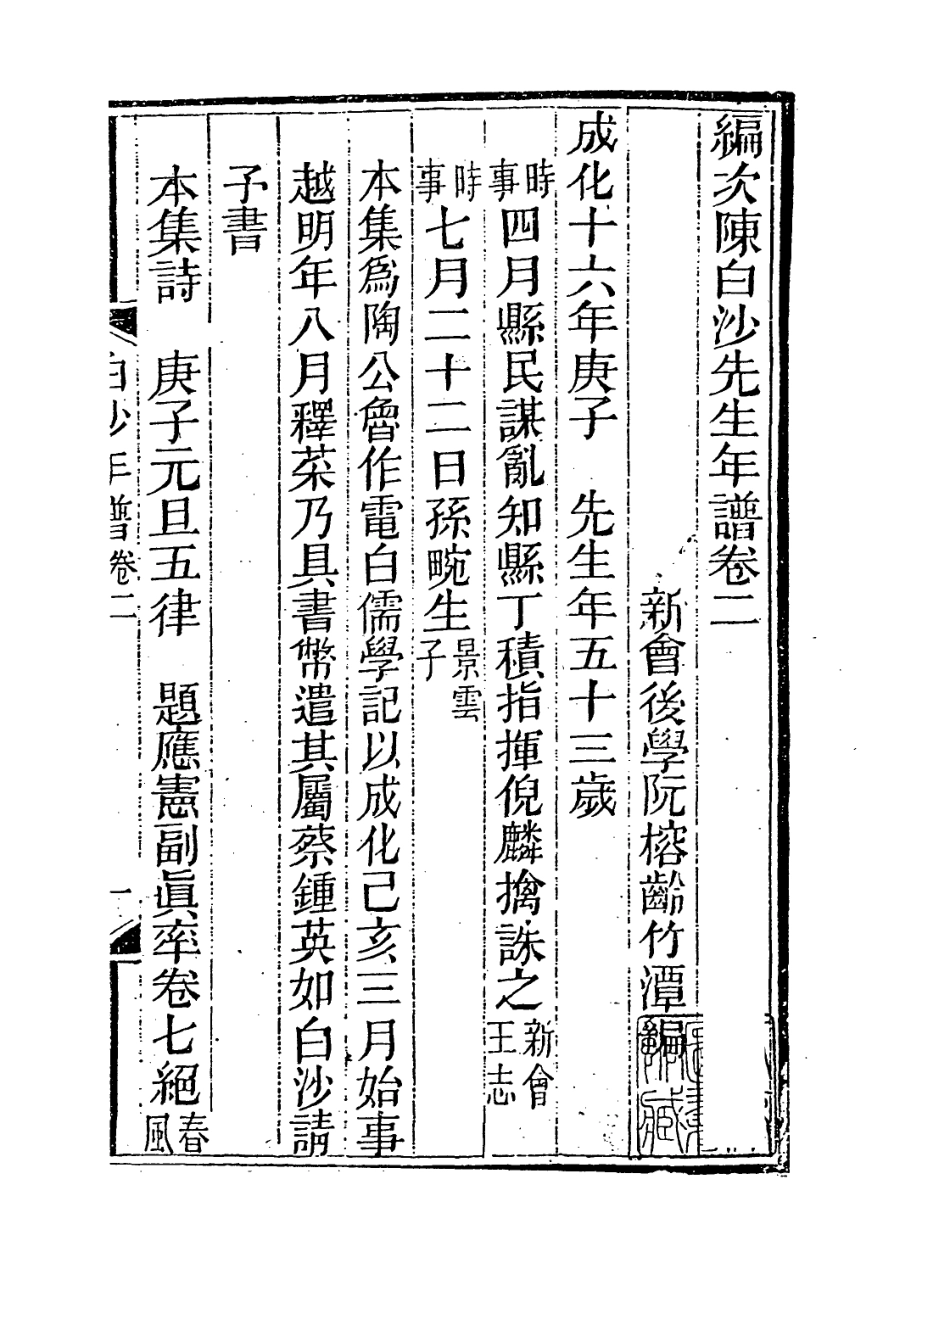 編次陳白沙先生年譜卷二
新會後學阮榕齡竹潭編
成化十六年庚子　先生年五十三歲
時事四月縣民謀亂知縣丁積指揮倪麟擒誅之新會王志
時事七月二十二日孫畹生景雲子
本集為陶公魯作電白儒學記以成化己亥三月始事
越明年八月釋菜乃具書幣遣其屬蔡鍾英如白沙請
子書
本集詩　庚子元旦五律　題應憲副眞率卷七絕春風
白沙年譜卷二　一